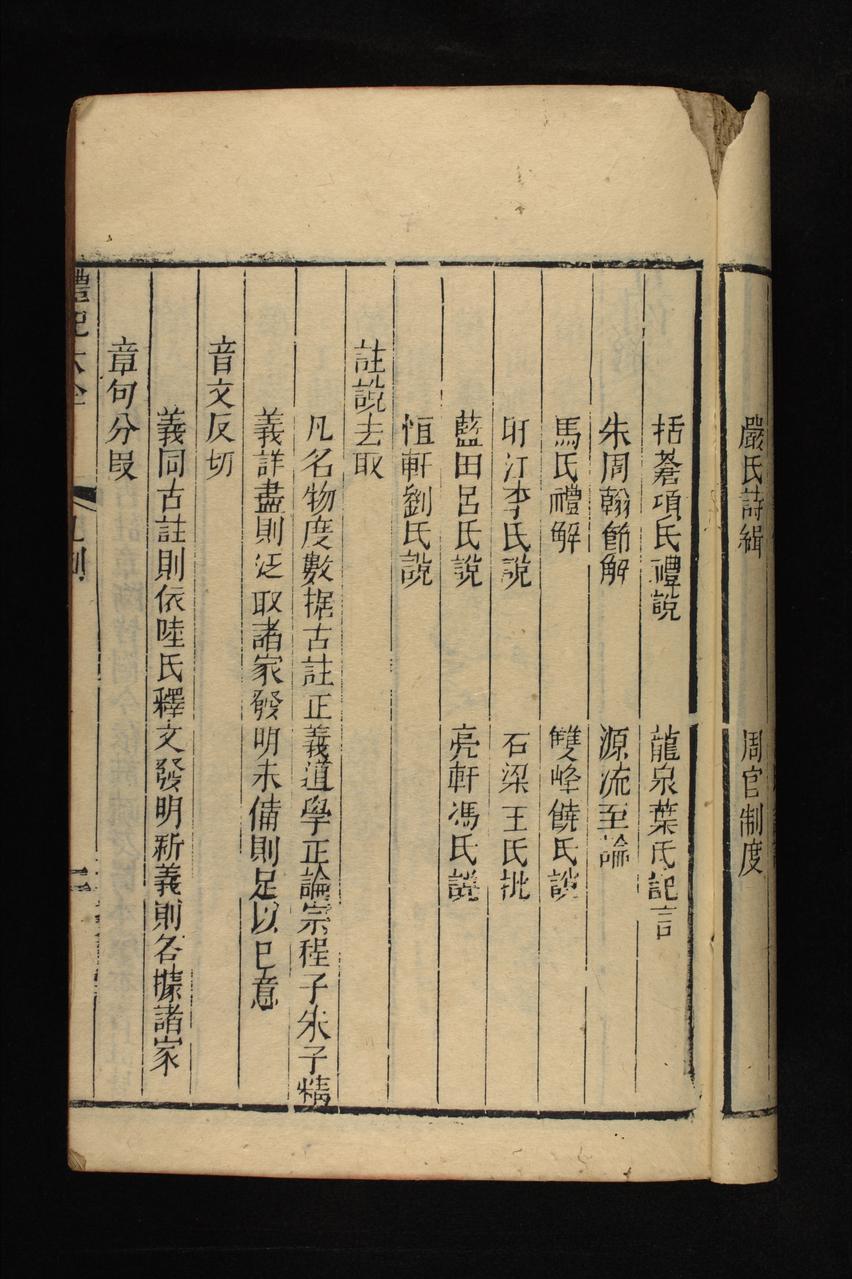 嚴氏詩緝　周官制度
括蒼項氏禮說　龍泉葉氏記言
朱周翰節解　源流至論
馬氏禮解　雙峰饒氏說
盱江李氏說　石梁王氏批
藍田呂氏說　亮軒馮氏說
恒軒劉氏說
註說去取
凡名物度數据古註正義道學正論宗程子朱子精
義詳盡則泛取諸家發明未備則足以己意
音文反切
義同古註則依陸氏釋文發明新義則各據諸家
章句分段
禮記大全　凡例　二